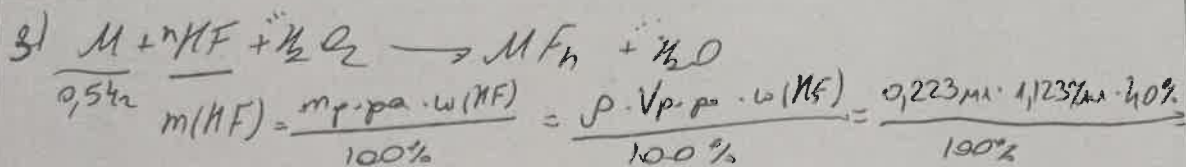 3) M + nHF + H₂O₂ → MFₙ + H₂O
0,54г
m(HF) = mр-ра · ω(HF) / 100% = ρ · Vр-ра · ω(HF) / 100% = 0,223мл · 1,123г/мл · 40% / 100% =